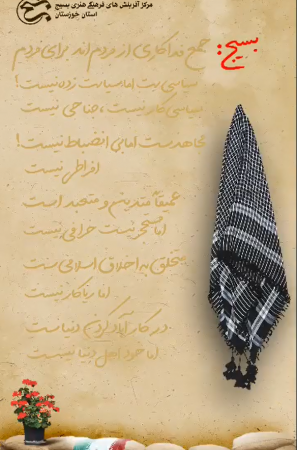 مرکز آفرینش های فرهنگی هنری بسیج
استان خوزستان
بسیج:
جمع فداکاری از مردم اند برای مردم
سیاسی ست اما سیاست زده نیست!
سیاسی کار نیست، جناحی نیست
مجاهد ست اما بی انضباط نیست!
افراطی نیست
عمیقاً متدین و متعبد است
اما متحجر نیست خرافی نیست
متخلق به اخلاق اسلامی ست
اما ریاکار نیست
در کار آباد کردن دنیا ست
اما خود اهل دنیا نیست